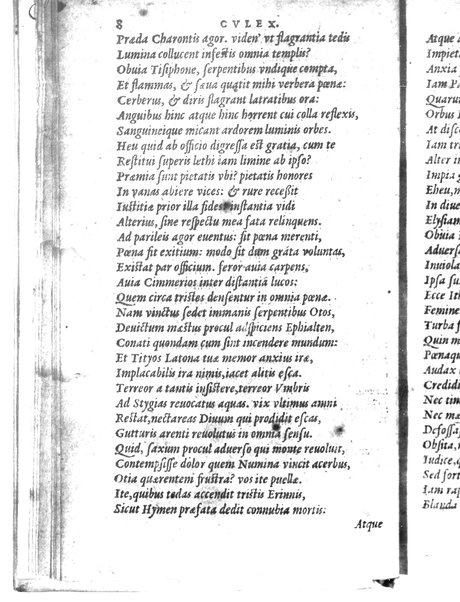 8 CVLEX.
Præda Charontis agor. viden' vt flagrantia tedis
Lumina collucent infestis omnia templis?
Obuia Tisiphone, serpentibus vndique compta,
Et flammas, & sæua quatit mihi verbera pœna:
Cerberus, & diris flagrant latratibus ora:
Anguibus hinc atque hinc horrent cui colla reflexis,
Sanguineique micant ardorem luminis orbes.
Heu quid ab officio digressa est gratia, cum te
Restitui superis lethi iam limine ab ipso?
Præmia sunt pietatis vbi? pietatis honores
In vanas abiere vices: & rure recessit
Iustitiæ prior illa fides instantia vidi
Alterius, sine respectu mea fata relinquens.
Ad parileis agor euentus: fit pœna merenti,
Pœna sit exitium: modo sit dum grata voluntas,
Existat par officium. feror auia carpens,
Auia Cimmerios inter distantia lucos:
Quem circa tristes densentur in omnia pœnæ.
Nam vinctus sedet immanis serpentibus Otos,
Deuictum mæstus procul adspiciens Ephialten,
Conati quondam cum sint incendere mundum:
Et Tityos Latona tuæ memor anxius iræ,
Implacabilis ira nimis, iacet alitis esca.
Terreor a tantis insistere, terreor Vmbris
Ad Stygias reuocatus aquas. vix vltimus amni
Restat, nectareas Diuum qui prodidit escas,
Gutturis arenti reuolutus in omnia sensu.
Quid, saxum procul aduerso qui monte reuoluit,
Contempsisse dolor quem Numina vincit acerbus,
Otia quærenteni frustra? vos ite puellæ.
Ite, quibus tædas accendit tristis Erinnis,
Sicut Hymen præfata dedit connubia mortis:
Atque
Atque a
Impiet
Anxia
Iam P
Quarum
Orbus
At disc
Iam tra
Alter in
Impia g
Eheu, m
In diue
Elysiam
Obuia
Aduersa
Inuiola
Ipsa su
Ecce Ith
Femine
Turba f
Quin m
Pœnaqu
Audax
Credidi
Nec tim
Nec ma
Defossa
Obsita,
Iudice, q
Sed fort
Iam rap
Blanda